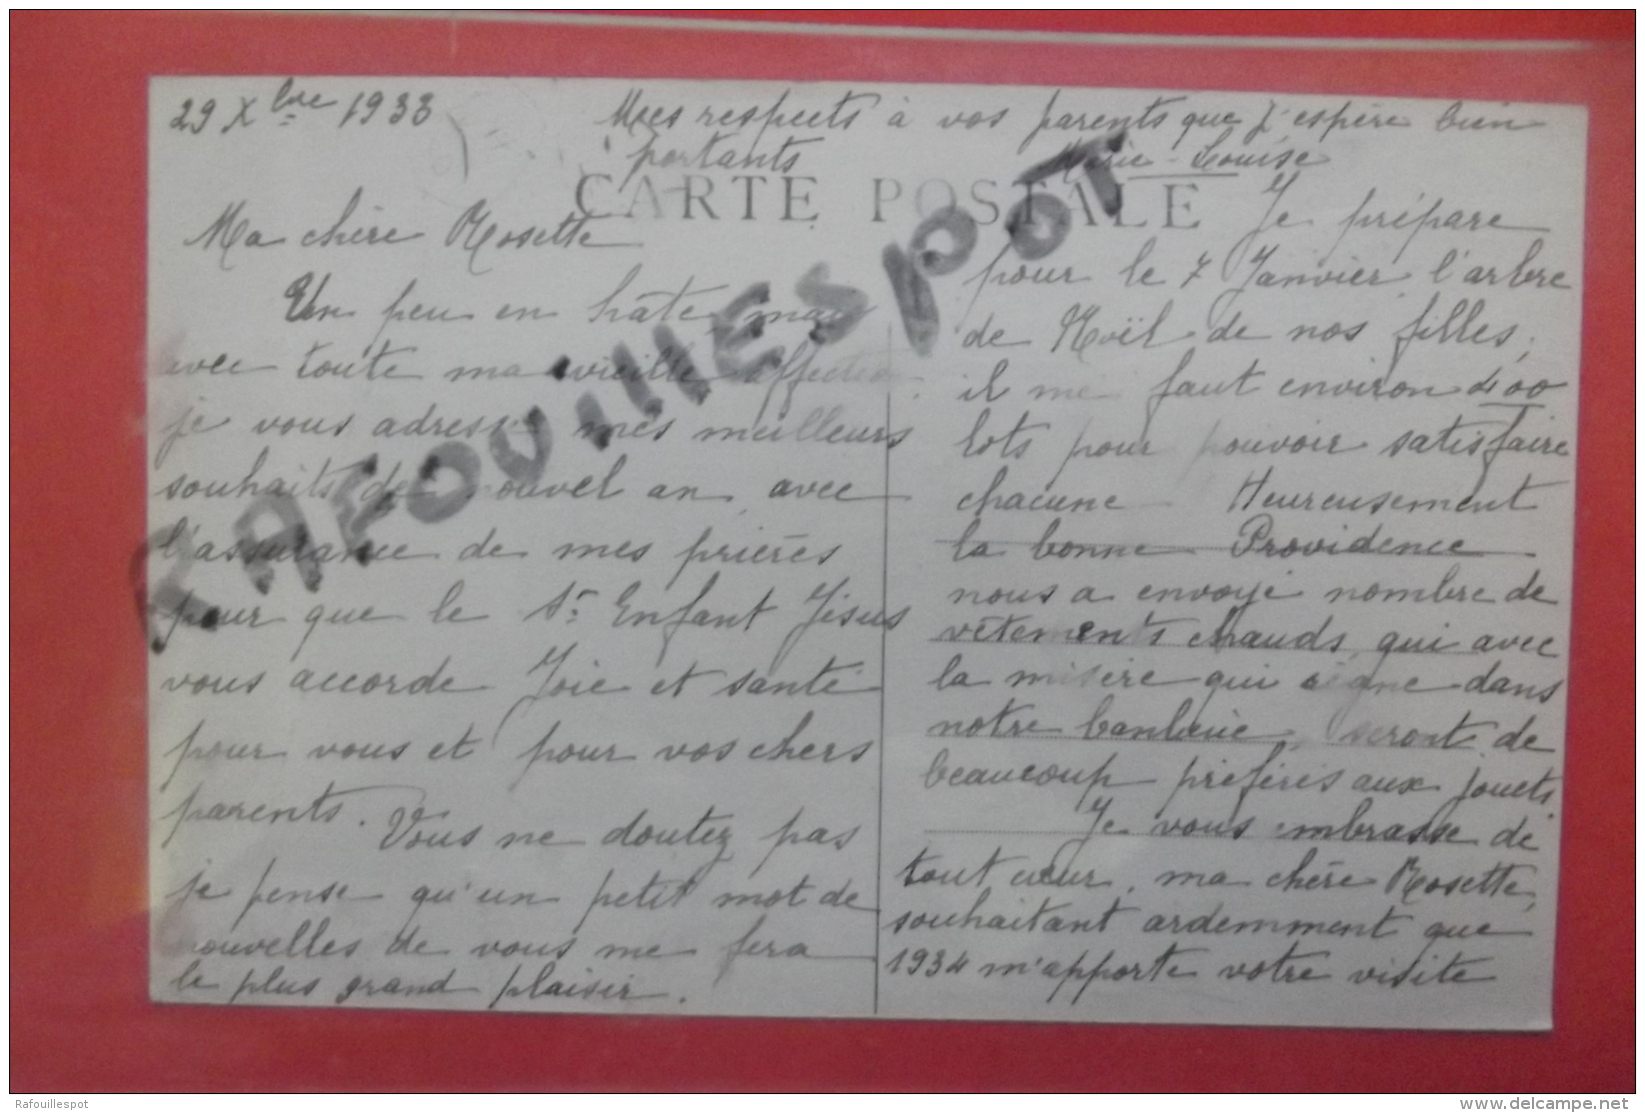 29 Xbre 1933
Ma chère Rosette
Un peu en hâte, mais
avec toute ma vieille affection
je vous adresse mes meilleurs
souhaits de nouvel an, avec
l'assurance de mes prières
pour que le St Enfant Jésus
vous accorde Joie et santé
pour vous et pour vos chers
parents.
Vous ne doutez pas
je pense qu'un petit mot de
nouvelles de vous me fera
le plus grand plaisir.
CARTE POSTALE
Je prépare
pour le 7 Janvier l'arbre
de Noël de nos filles;
il me faut environ 400
lots pour pouvoir satisfaire
chacune Heureusement
la bonne Providence
nous a envoyé nombre de
vêtements chauds, qui avec
la misère qui règne dans
notre banlieue, seront de
beaucoup préférés aux jouets
Je vous embrasse de
tout cœur, ma chère Rosette,
souhaitant ardemment que
1934 m'apporte votre visite
Mes respects à vos parents que j'espère bien
portants
Marie-Louise
RAFOUILLESPOT
Rafouillespot
www.delcampe.net